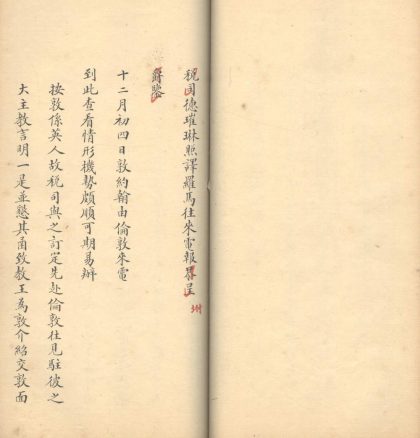 稅司德璀琳照譯羅馬往來電報呈
鑒
十二月初四日敦約翰由倫敦來電
到此查看情形機勢頗順可期易辦
按敦係英人故稅司與之訂定先赴倫敦往見駐彼之
大主教言明一是並懇其函致教王為敦介紹交敦面